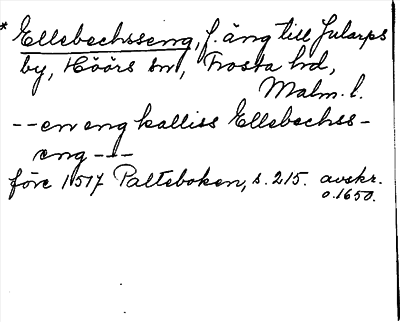 * Ellebechsseng, f. äng till Jularps
by, Höörs sn, Frosta hd,
Malm. l.
-- en eng kalliss Ellebechss-
eng ---
före 1517 Palteboken, s. 215. avskr.
o. 1650.